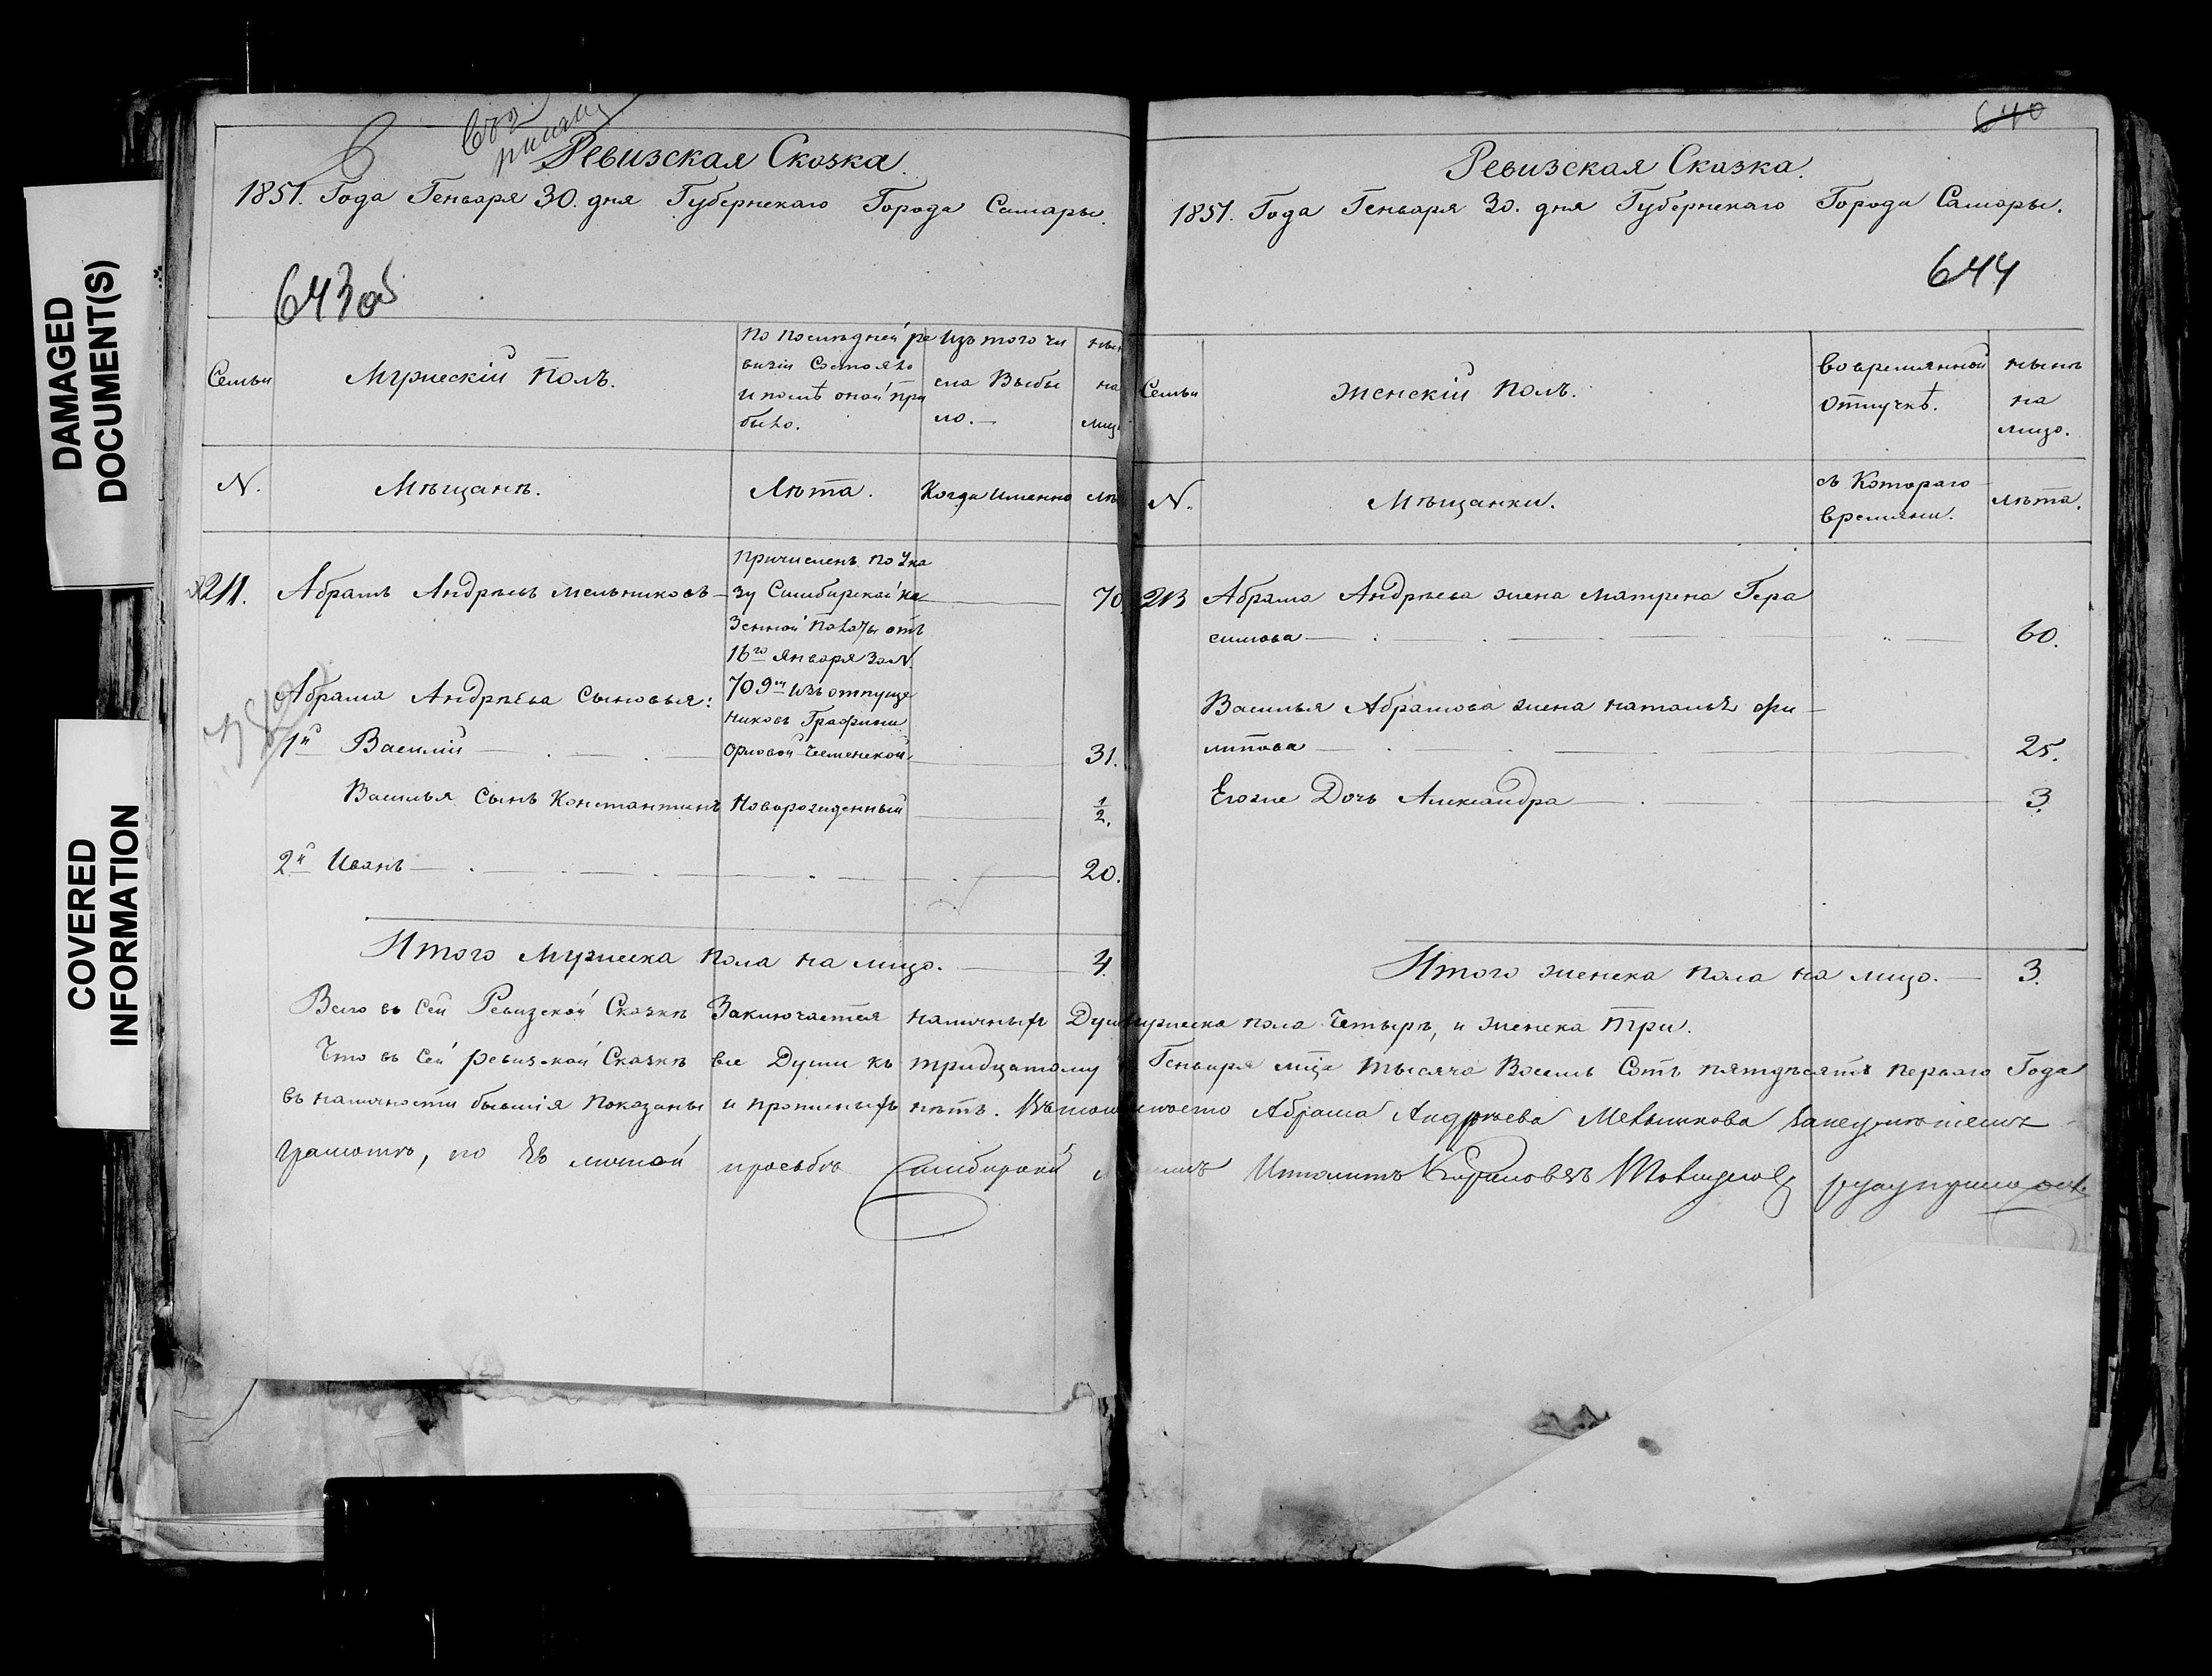 DAMAGED
DOCUMENT(S)
COVERED
INFORMATION
Ревизская Сказка.
1851. Года Генваря 30. дня Губернскаго Города Самары.
643об
Семьи
Мужескій Полъ.
По последней ре
визіи Состояло
и послѣ оной при
было.
Изъ того чи
сла Выбы
ло.
N.
Мѣщане.
Лѣта.
Когда именно
211.
Абрамъ Андрѣевъ Мельниковъ
Причисленъ по Ука
зу Симбирской Ка
зенной Палаты отъ
16го Января за N.
709м изъ отпуще
никовъ Графини
Орловой Чесменской.
70
Абрама Андрѣева сыновья:
1й Василій
31.
Василья Сынъ Константинъ Новорожденный
1/2.
2й Иванъ
20.
Итого Мужеска пола на лицо. 4.
640
Ревизская Сказка.
1851. Года Генваря 30. дня Губернскаго Города Самары.
644
Семьи
Женскій Полъ.
Во времянной
Отлучкѣ.
нынѣ
на
лицо.
N.
Мѣщанки.
съ Котораго
времяни.
лѣта.
Абрама Андрѣева жена Матрена Гера
симова
60.
Василья Абрамова жена Наталья Фи
липова
25.
Егоже Дочь Александра
3.
Итого женска пола на лицо. 3.
Всего въ Сей Ревизской Сказкѣ Заключается наличныхъ Душ мужеска пола Четыре, и женска три.
Что въ Сей ревизской Сказкѣ все Души къ тридцатому Генваря мца тысяча Восемь Сотъ пятдѣсятъ перваго Года
въ наличности бывшія показаны и прописныхъ нѣтъ. Абрама Андрѣева Мельникова
грамотѣ, по Его личной просьбѣ Симбирской Иполитъ